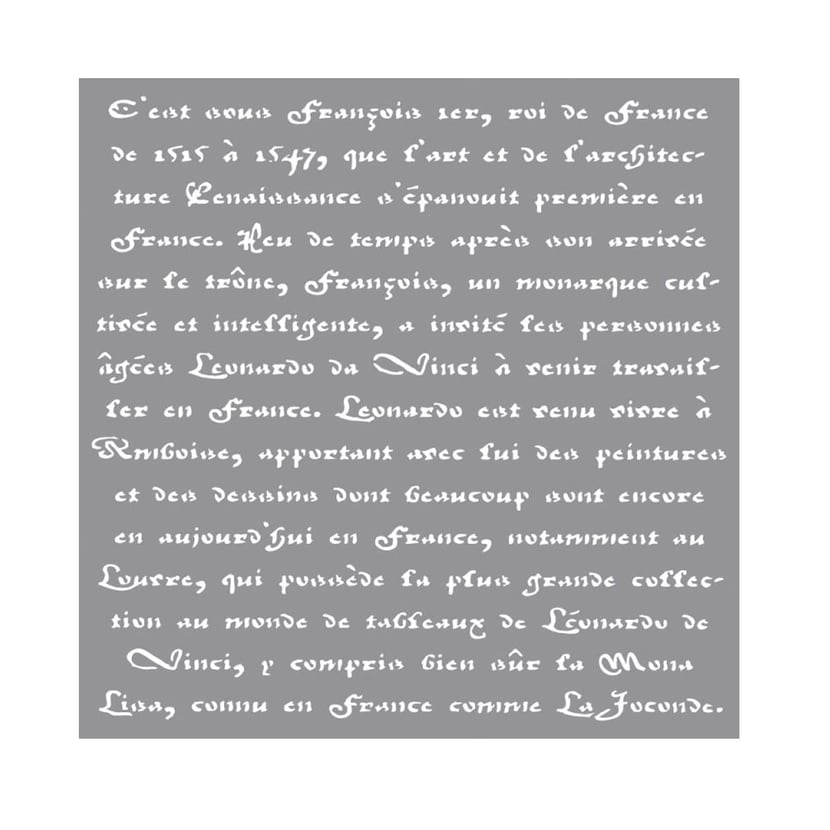 C'est sous François 1er, roi de France
de 1515 à 1547, que l'art et de l'architec-
ture Renaissance s'épanouit première en
France. Peu de temps après son arrivée
sur le trône, François, un monarque cul-
tivée et intelligente, a invité les personnes
âgées Leonardo da Vinci à venir travail-
ler en France. Leonardo est venu vivre à
Amboise, apportant avec lui des peintures
et des dessins dont beaucoup sont encore
en aujourd'hui en France, notamment au
Louvre, qui possède la plus grande collec-
tion au monde de tableaux de Léonardo de
Vinci, y compris bien sûr la Mona
Lisa, connu en France comme La Joconde.